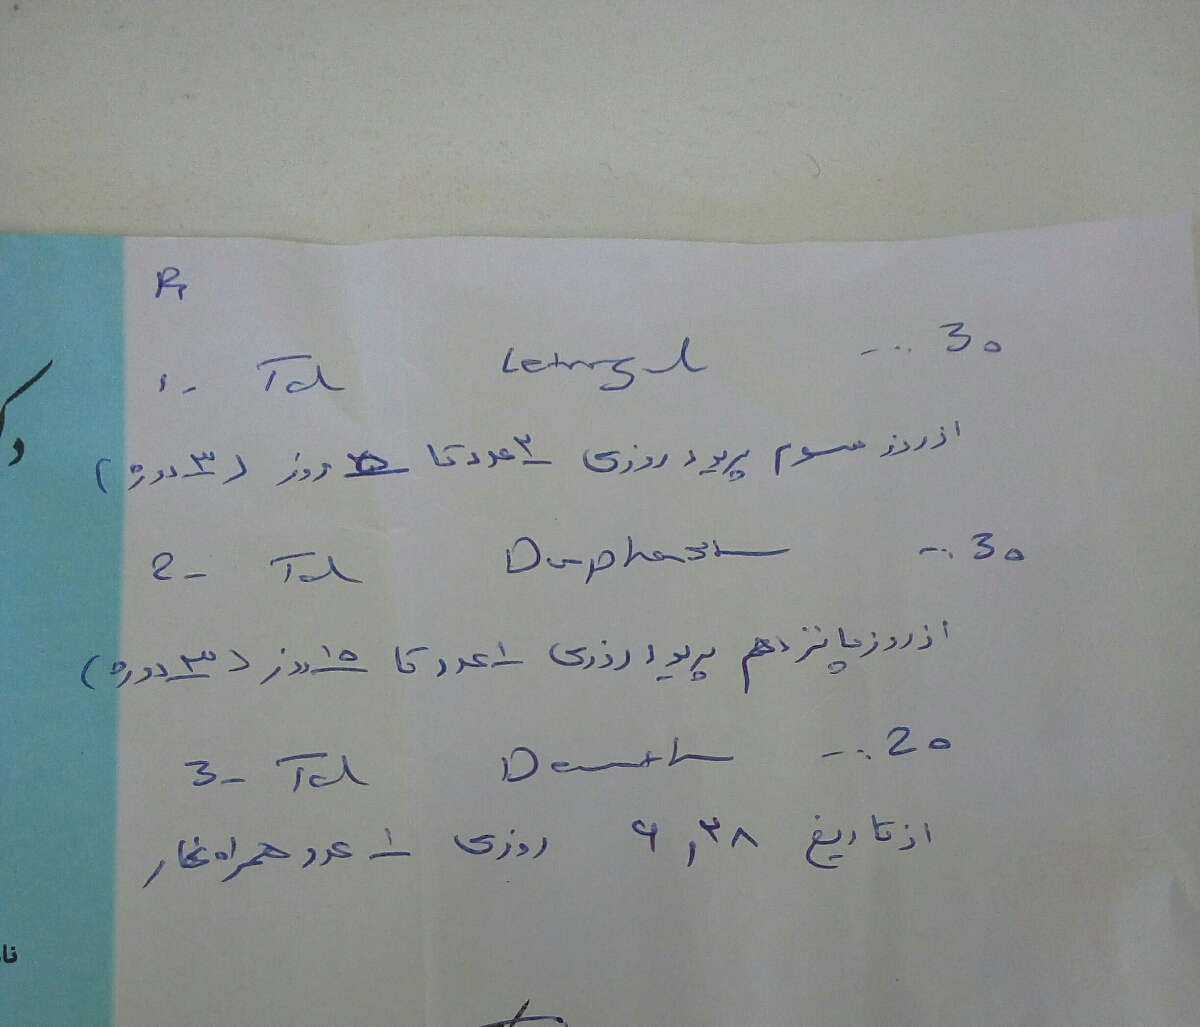 Rx
1- Tab Letrozol ... 30
از روز سوم پریود روزی ۲ عدد تا ۵ روز (۳ دوره)
2- Tab Duphaston ... 30
از روز پانزدهم پریود روزی ۱ عدد تا ۱۵ روز (۳ دوره)
3- Tab ... 20
از تاریخ ۶,۲۸ روزی ۱ عدد همراه نهار